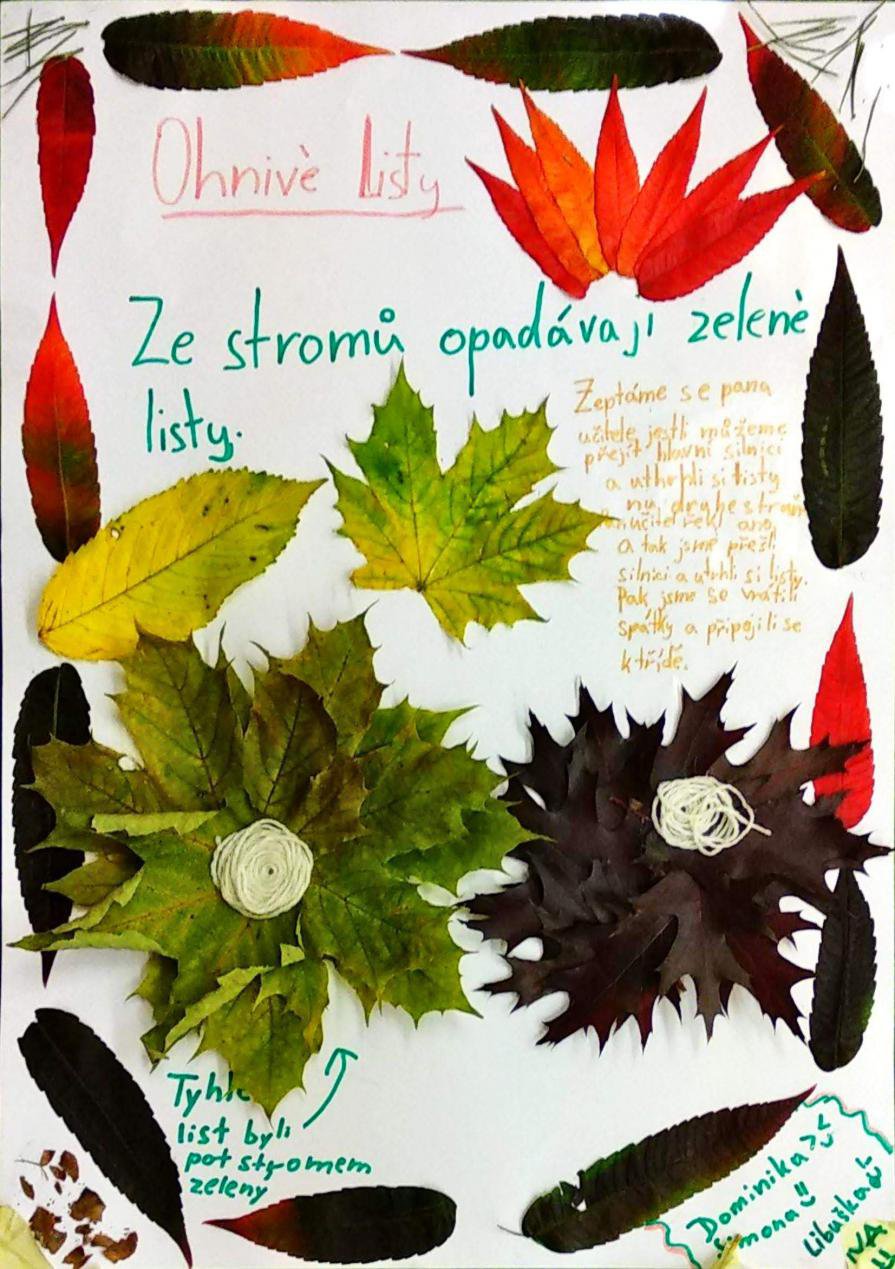 Ohnivè listy
Ze stromů opadávají zelenè
listy.
Zeptáme se pana
učitele jestli můžeme
přejít hlavní silnici
a uthrhli si listy
na druhe straně
učitel řekl ano
a tak jsme přešli
silnici a utrhli si listy.
Pak jsme se vrátili
spátky a připojili se
k třídě.
Tyhle
list byli
pot stromem
zelený
Dominika
Simona
Libuška